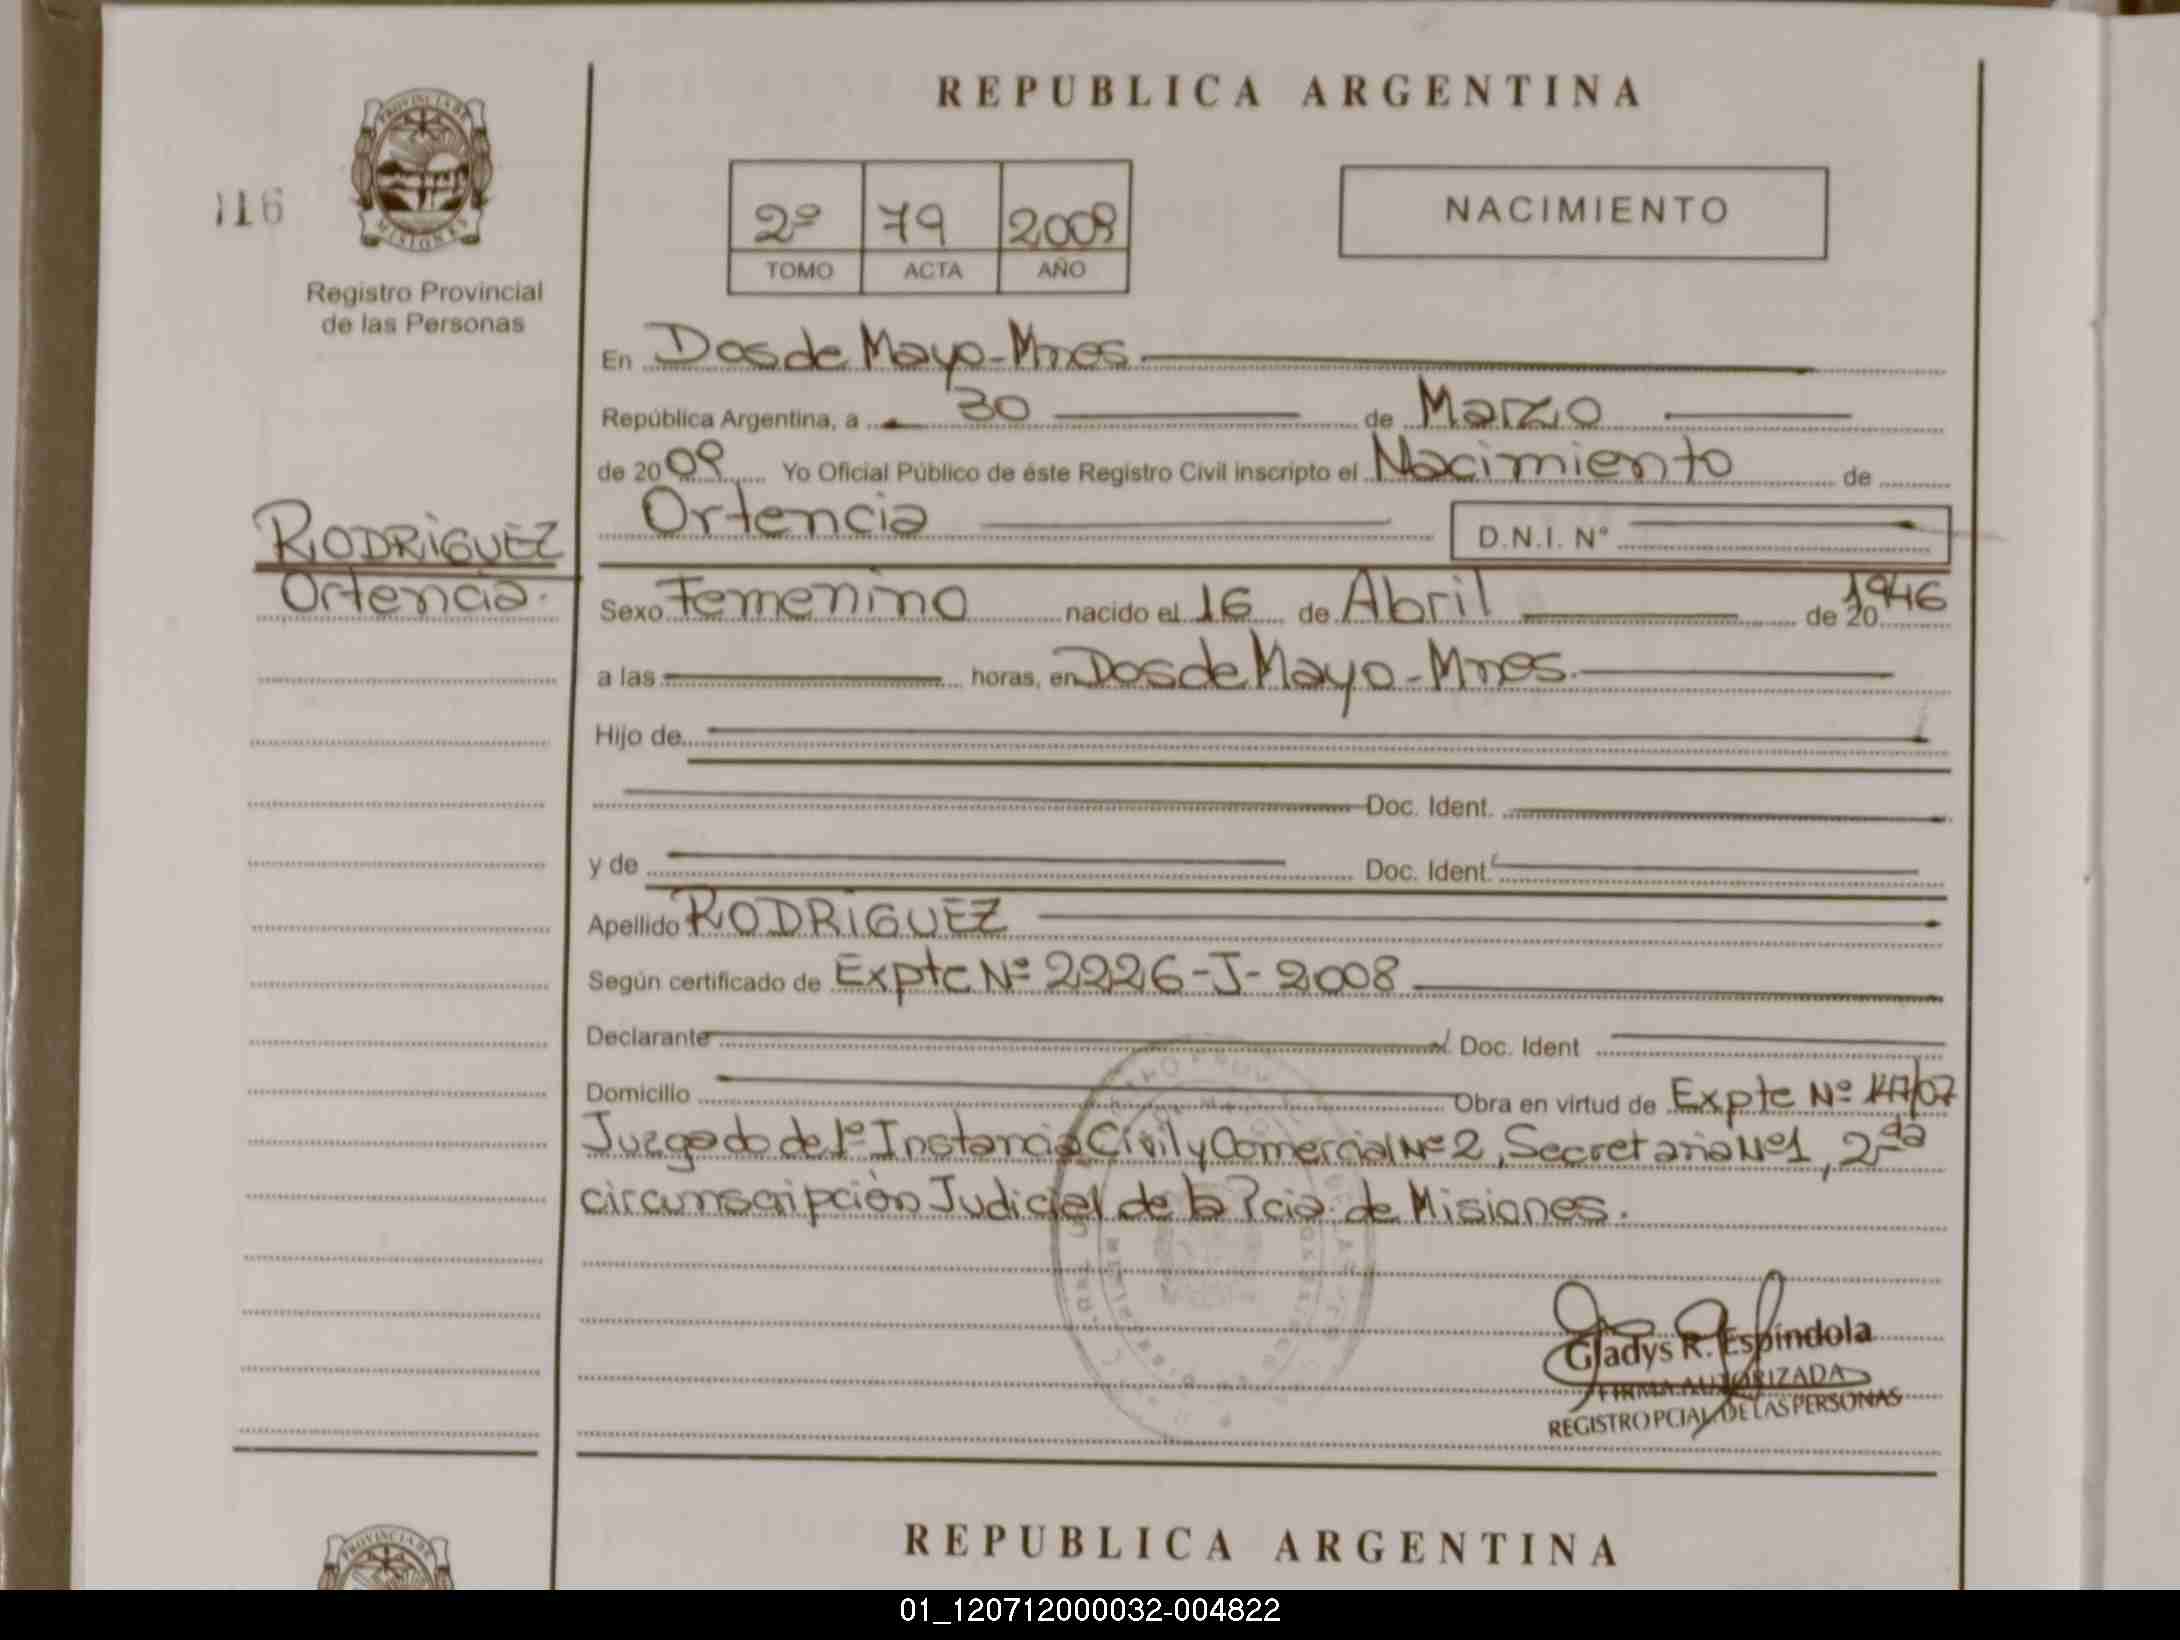 REPUBLICA ARGENTINA
PROVINCIA DE
MISIONES
116
Registro Provincial
de las Personas
2º 79 2009
TOMO ACTA AÑO
NACIMIENTO
En Dos de Mayo - Mnes.
República Argentina, a 30 de Marzo
de 2009 Yo Oficial Público de éste Registro Civil inscripto el Nacimiento de
Ortencia D.N.I. N°
RODRIGUEZ
Ortencia.
Sexo Femenino nacido el 16 de Abril de 20 1946
a las horas, en Dos de Mayo - Mnes.
Hijo de
Doc. Ident.
y de Doc. Ident.
Apellido RODRIGUEZ
Según certificado de Expte Nº 2226-J-2008
Declarante Doc. Ident
Domicilio Obra en virtud de Expte Nº /07
Juzgado de 1º Instancia Civil y Comercial Nº 2, Secretaria Nº 1, 2da
circunscripción Judicial de la Pcia. de Misiones.
Gladys R. Espíndola
FIRMA AUTORIZADA
REGISTRO PCIAL DE LAS PERSONAS
REPUBLICA ARGENTINA
PROVINCIA DE
01_120712000032-004822